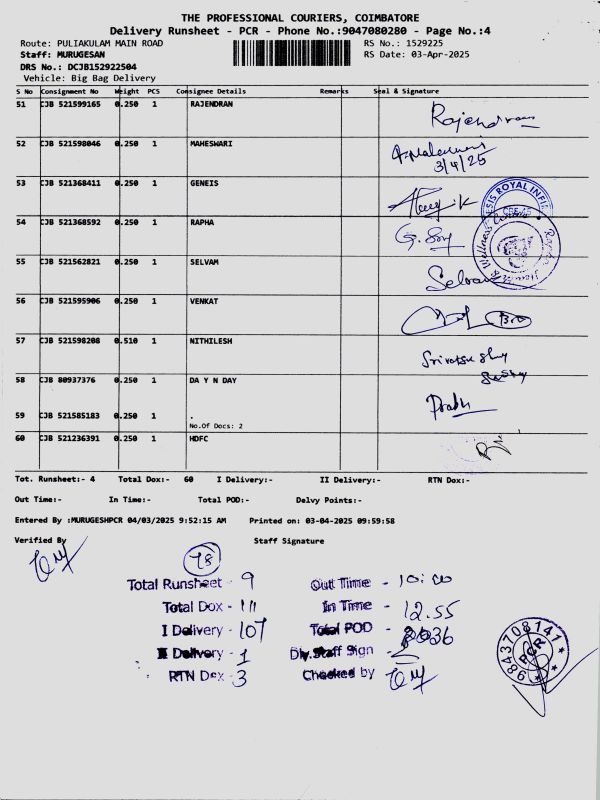 THE PROFESSIONAL COURIERS, COIMBATORE
Delivery Runsheet - PCR - Phone No.:9047080280 - Page No.:4
Route: PULIAKULAM MAIN ROAD RS No.: 1529225
Staff: MURUGESAN RS Date: 03-Apr-2025
DRS No.: DCJB152922504
Vehicle: Big Bag Delivery
S No Consignment No Weight PCS Consignee Details Remarks Seal & Signature
51 CJB 521599165 0.250 1 RAJENDRAN Rajendran
52 CJB 521598046 0.250 1 MAHESWARI
3/4/25
53 CJB 521368411 0.250 1 GENEIS
54 CJB 521368592 0.250 1 RAPHA
55 CJB 521562821 0.250 1 SELVAM Selvam
56 CJB 521595906 0.250 1 VENKAT
57 CJB 521598208 0.510 1 NITHILESH
58 CJB 80937376 0.250 1 DA Y N DAY
59 CJB 521585183 0.250 1 .
No.Of Docs: 2
60 CJB 521236391 0.250 1 HDFC
Tot. Runsheet:- 4 Total Dox:- 60 I Delivery:- II Delivery:- RTN Dox:-
Out Time:- In Time:- Total POD:- Delvy Points:-
Entered By :MURUGESHPCR 04/03/2025 9:52:15 AM Printed on: 03-04-2025 09:59:58
Verified By Staff Signature
78
Total Runsheet - 9 Out Time - 10:00
Total Dox - 111 In Time - 12.55
I Delivery - 107 Total POD -
II Delivery - 1 Div.Staff Sign -
RTN Dox - 3 Checked by
9843708141 PCR